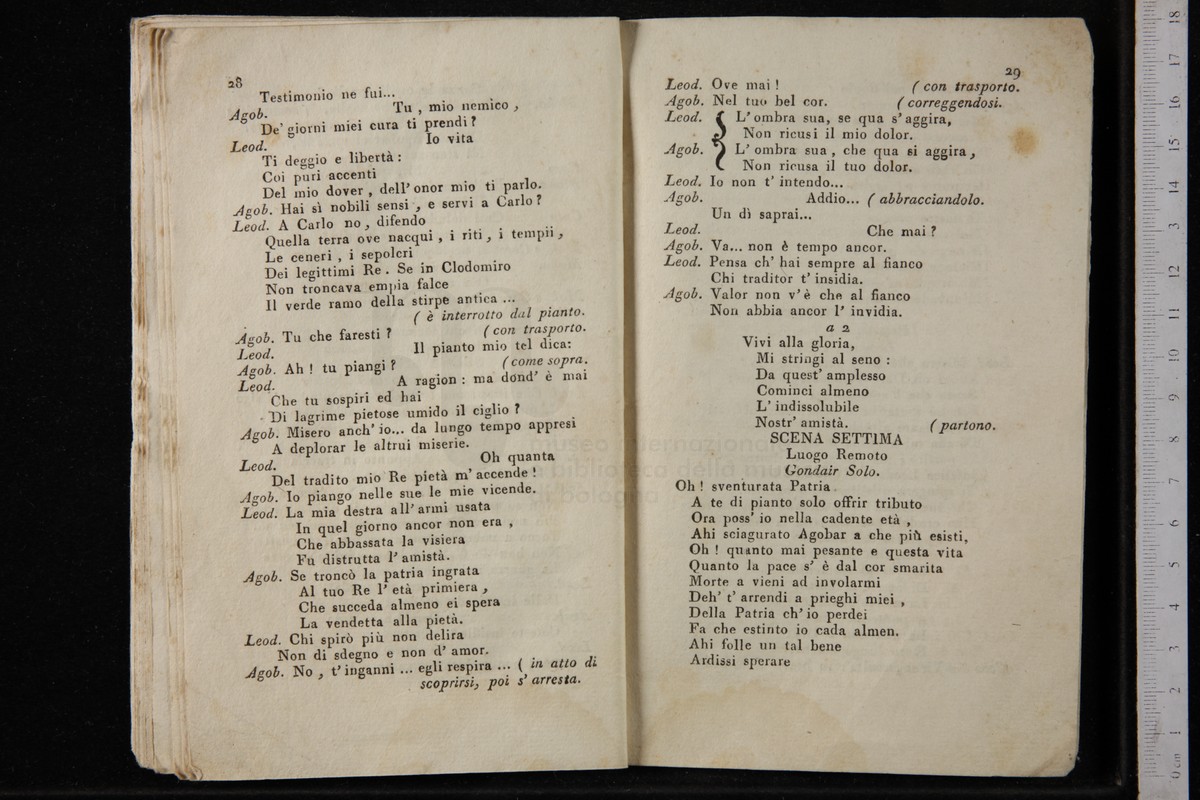 28
Testimonio ne fui...
Agob. Tu , mio nemico ,
De' giorni miei cura ti prendi ?
Leod. Io vita
Ti deggio e libertà :
Coi puri accenti
Del mio dover , dell' onor mio ti parlo.
Agob. Hai sì nobili sensi , e servi a Carlo ?
Leod. A Carlo no , difendo
Quella terra ove nacqui , i riti , i tempii ,
Le ceneri , i sepolcri
Dei legittimi Re . Se in Clodomiro
Non troncava empia falce
Il verde ramo della stirpe antica ...
( è interrotto dal pianto.
Agob. Tu che faresti ? ( con trasporto.
Leod. Il pianto mio tel dica:
Agob. Ah ! tu piangi ? ( come sopra.
Leod. A ragion : ma dond' è mai
Che tu sospiri ed hai
Di lagrime pietose umido il ciglio ?
Agob. Misero anch' io... da lungo tempo appresi
A deplorar le altrui miserie.
Leod. Oh quanta
Del tradito mio Re pietà m' accende !
Agob. Io piango nelle sue le mie vicende.
Leod. La mia destra all' armi usata
In quel giorno ancor non era ,
Che abbassata la visiera
Fu distrutta l' amistà.
Agob. Se troncò la patria ingrata
Al tuo Re l' età primiera ,
Che succeda almeno ei spera
La vendetta alla pietà.
Leod. Chi spirò più non delira
Non di sdegno e non d' amor.
Agob. No , t' inganni ... egli respira ... ( in atto di
scoprirsi, poi s' arresta.
29
Leod. Ove mai ! ( con trasporto.
Agob. Nel tuo bel cor. ( correggendosi.
Leod. L' ombra sua, se qua s' aggira,
Non ricusi il mio dolor.
Agob. L' ombra sua , che qua si aggira ,
Non ricusa il tuo dolor.
Leod. Io non t' intendo...
Agob. Addio... ( abbracciandolo.
Un dì saprai...
Leod. Che mai ?
Agob. Va... non è tempo ancor.
Leod. Pensa ch' hai sempre al fianco
Chi traditor t' insidia.
Agob. Valor non v' è che al fianco
Non abbia ancor l' invidia.
a 2
Vivi alla gloria,
Mi stringi al seno :
Da quest' amplesso
Cominci almeno
L' indissolubile
Nostr' amistà. ( partono.
SCENA SETTIMA
Luogo Remoto
Gondair Solo.
Oh ! sventurata Patria
A te di pianto solo offrir tributo
Ora poss' io nella cadente età ,
Ahi sciagurato Agobar a che più esisti,
Oh ! quanto mai pesante e questa vita
Quanto la pace s' è dal cor smarita
Morte a vieni ad involarmi
Deh' t' arrendi a prieghi miei ,
Della Patria ch' io perdei
Fa che estinto io cada almen.
Ahi folle un tal bene
Ardissi sperare